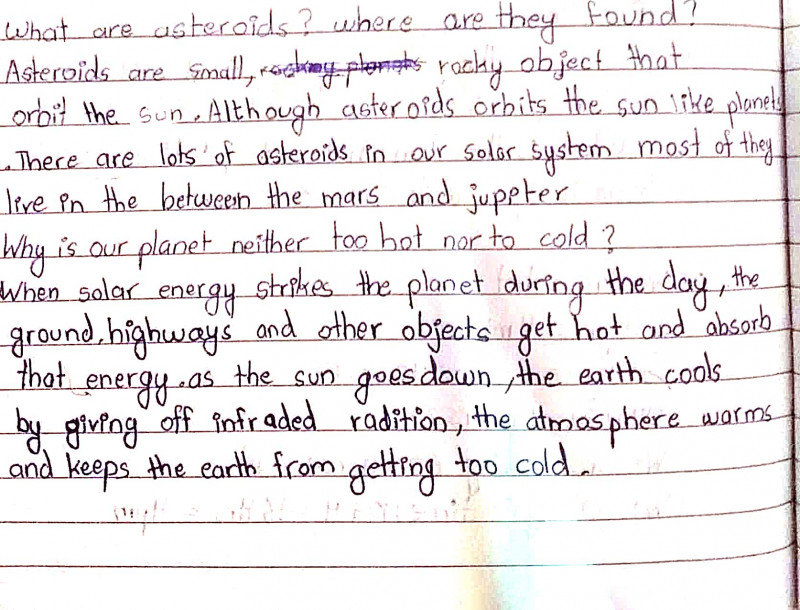 What are asteroids? where are they found?
Asteroids are small, rocky object that
orbit the sun. Although asteroids orbits the sun like planets
. There are lots of asteroids in our solar system most of they
live in the between the mars and jupeter
Why is our planet neither too hot nor to cold?
When solar energy strikes the planet during the day, the
ground, highways and other objects get hot and absorb
that energy. as the sun goes down, the earth cools
by giving off infraded radition, the atmosphere warms
and keeps the earth from getting too cold.